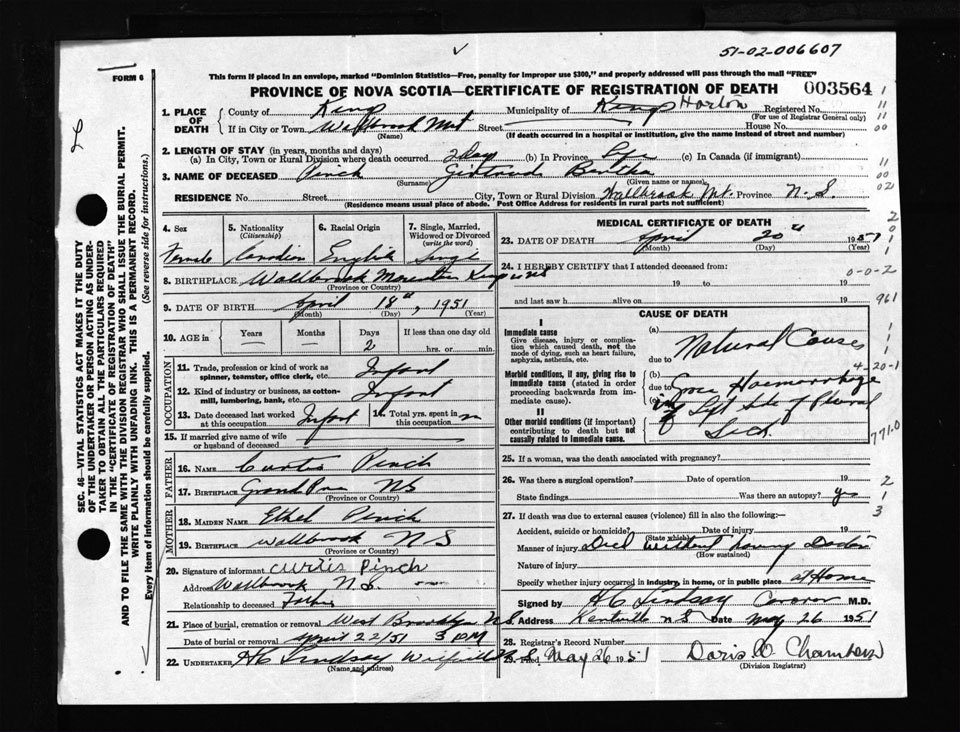 51-02-006607
FORM 6
This form if placed in an envelope, marked "Dominion Statistics—Free, penalty for improper use $300," and properly addressed will pass through the mail "FREE"
PROVINCE OF NOVA SCOTIA—CERTIFICATE OF REGISTRATION OF DEATH 003564
1. PLACE OF DEATH
County of Kings Municipality of Kings Horton Registered No.
(For use of Registrar General only)
If in City or Town Wallbrook Mt Street House No.
(Name) (If death occurred in a hospital or institution, give the name instead of street and number)
2. LENGTH OF STAY (in years, months and days)
(a) In City, Town or Rural Division where death occurred 2 Day (b) In Province Life (c) In Canada (if immigrant)
3. NAME OF DECEASED Pinch Girtrud Bertha
(Surname) (Given name or names)
RESIDENCE No. Street City, Town or Rural Division Wallbrook Mt. Province N.S.
(Residence means usual place of abode. Post Office Address for residents in rural parts not sufficient)
4. Sex 5. Nationality (Citizenship) 6. Racial Origin 7. Single, Married, Widowed or Divorced (write the word)
Female Canadian English Single
8. BIRTHPLACE Wallbrook Mountain Kings NS
(Province or Country)
9. DATE OF BIRTH April 18", 1951
(Month) (Day) (Year)
10. AGE in Years Months Days If less than one day old
2 hrs. or min.
OCCUPATION
11. Trade, profession or kind of work as spinner, teamster, office clerk, etc. Infant
12. Kind of industry or business, as cotton-mill, lumbering, bank, etc. Infant
13. Date deceased last worked at this occupation Infant 14. Total yrs. spent in
15. If married give name of wife or husband of deceased
FATHER
16. NAME Curtis Pinch
17. BIRTHPLACE Grand Pre NS
(Province or Country)
MOTHER
18. MAIDEN NAME Ethel Pinch
19. BIRTHPLACE Wallbrook N S
(Province or Country)
20. Signature of informant Curtis Pinch
Address Wallbrook N.S.
Relationship to deceased Father
21. Place of burial, cremation or removal West Brooklyn N.S.
Date of burial or removal April 22/51 3 PM
22. UNDERTAKER H C Lindsay
(Name and address)
MEDICAL CERTIFICATE OF DEATH
23. DATE OF DEATH April 20" 1951
(Month) (Day) (Year)
24. I HEREBY CERTIFY that I attended deceased from:
19 to 19
and last saw h alive on 19
CAUSE OF DEATH
I
Immediate cause
Give disease, injury or complication which caused death, not the mode of dying, such as heart failure, asphyxia, asthenia, etc.
(a) Natural Causes
due to
Morbid conditions, if any, giving rise to immediate cause (stated in order proceeding backwards from immediate cause).
(b)
due to Gross Haemorrhage
(c) Left side of Pleural Sack
II
Other morbid conditions (if important) contributing to death but not causally related to immediate cause.
25. If a woman, was the death associated with pregnancy?
26. Was there a surgical operation? Date of operation 19
State findings Was there an autopsy? yes
27. If death was due to external causes (violence) fill in also the following:—
Accident, suicide or homicide? Date of injury 19
(State which)
Manner of injury Died without having Doctor
(How sustained)
Nature of injury
Specify whether injury occurred in industry, in home, or in public place at Home
Signed by H C Lindsay Coroner M.D.
Address Kentville N S Date May 26 1951
28. Registrar's Record Number
29. Filed May 26 1951 Doris D Chambers
(Division Registrar)
SEC. 46—VITAL STATISTICS ACT MAKES IT THE DUTY
OF THE UNDERTAKER OR PERSON ACTING AS UNDER-
TAKER TO OBTAIN ALL THE PARTICULARS REQUIRED
IN THE "CERTIFICATE OF REGISTRATION OF DEATH"
AND TO FILE THE SAME WITH THE DIVISION REGISTRAR WHO SHALL ISSUE THE BURIAL PERMIT.
WRITE PLAINLY WITH UNFADING INK. THIS IS A PERMANENT RECORD.
Every item of information should be carefully supplied. (See reverse side for instructions.)
0-0-2
961
4-20-1
771.0